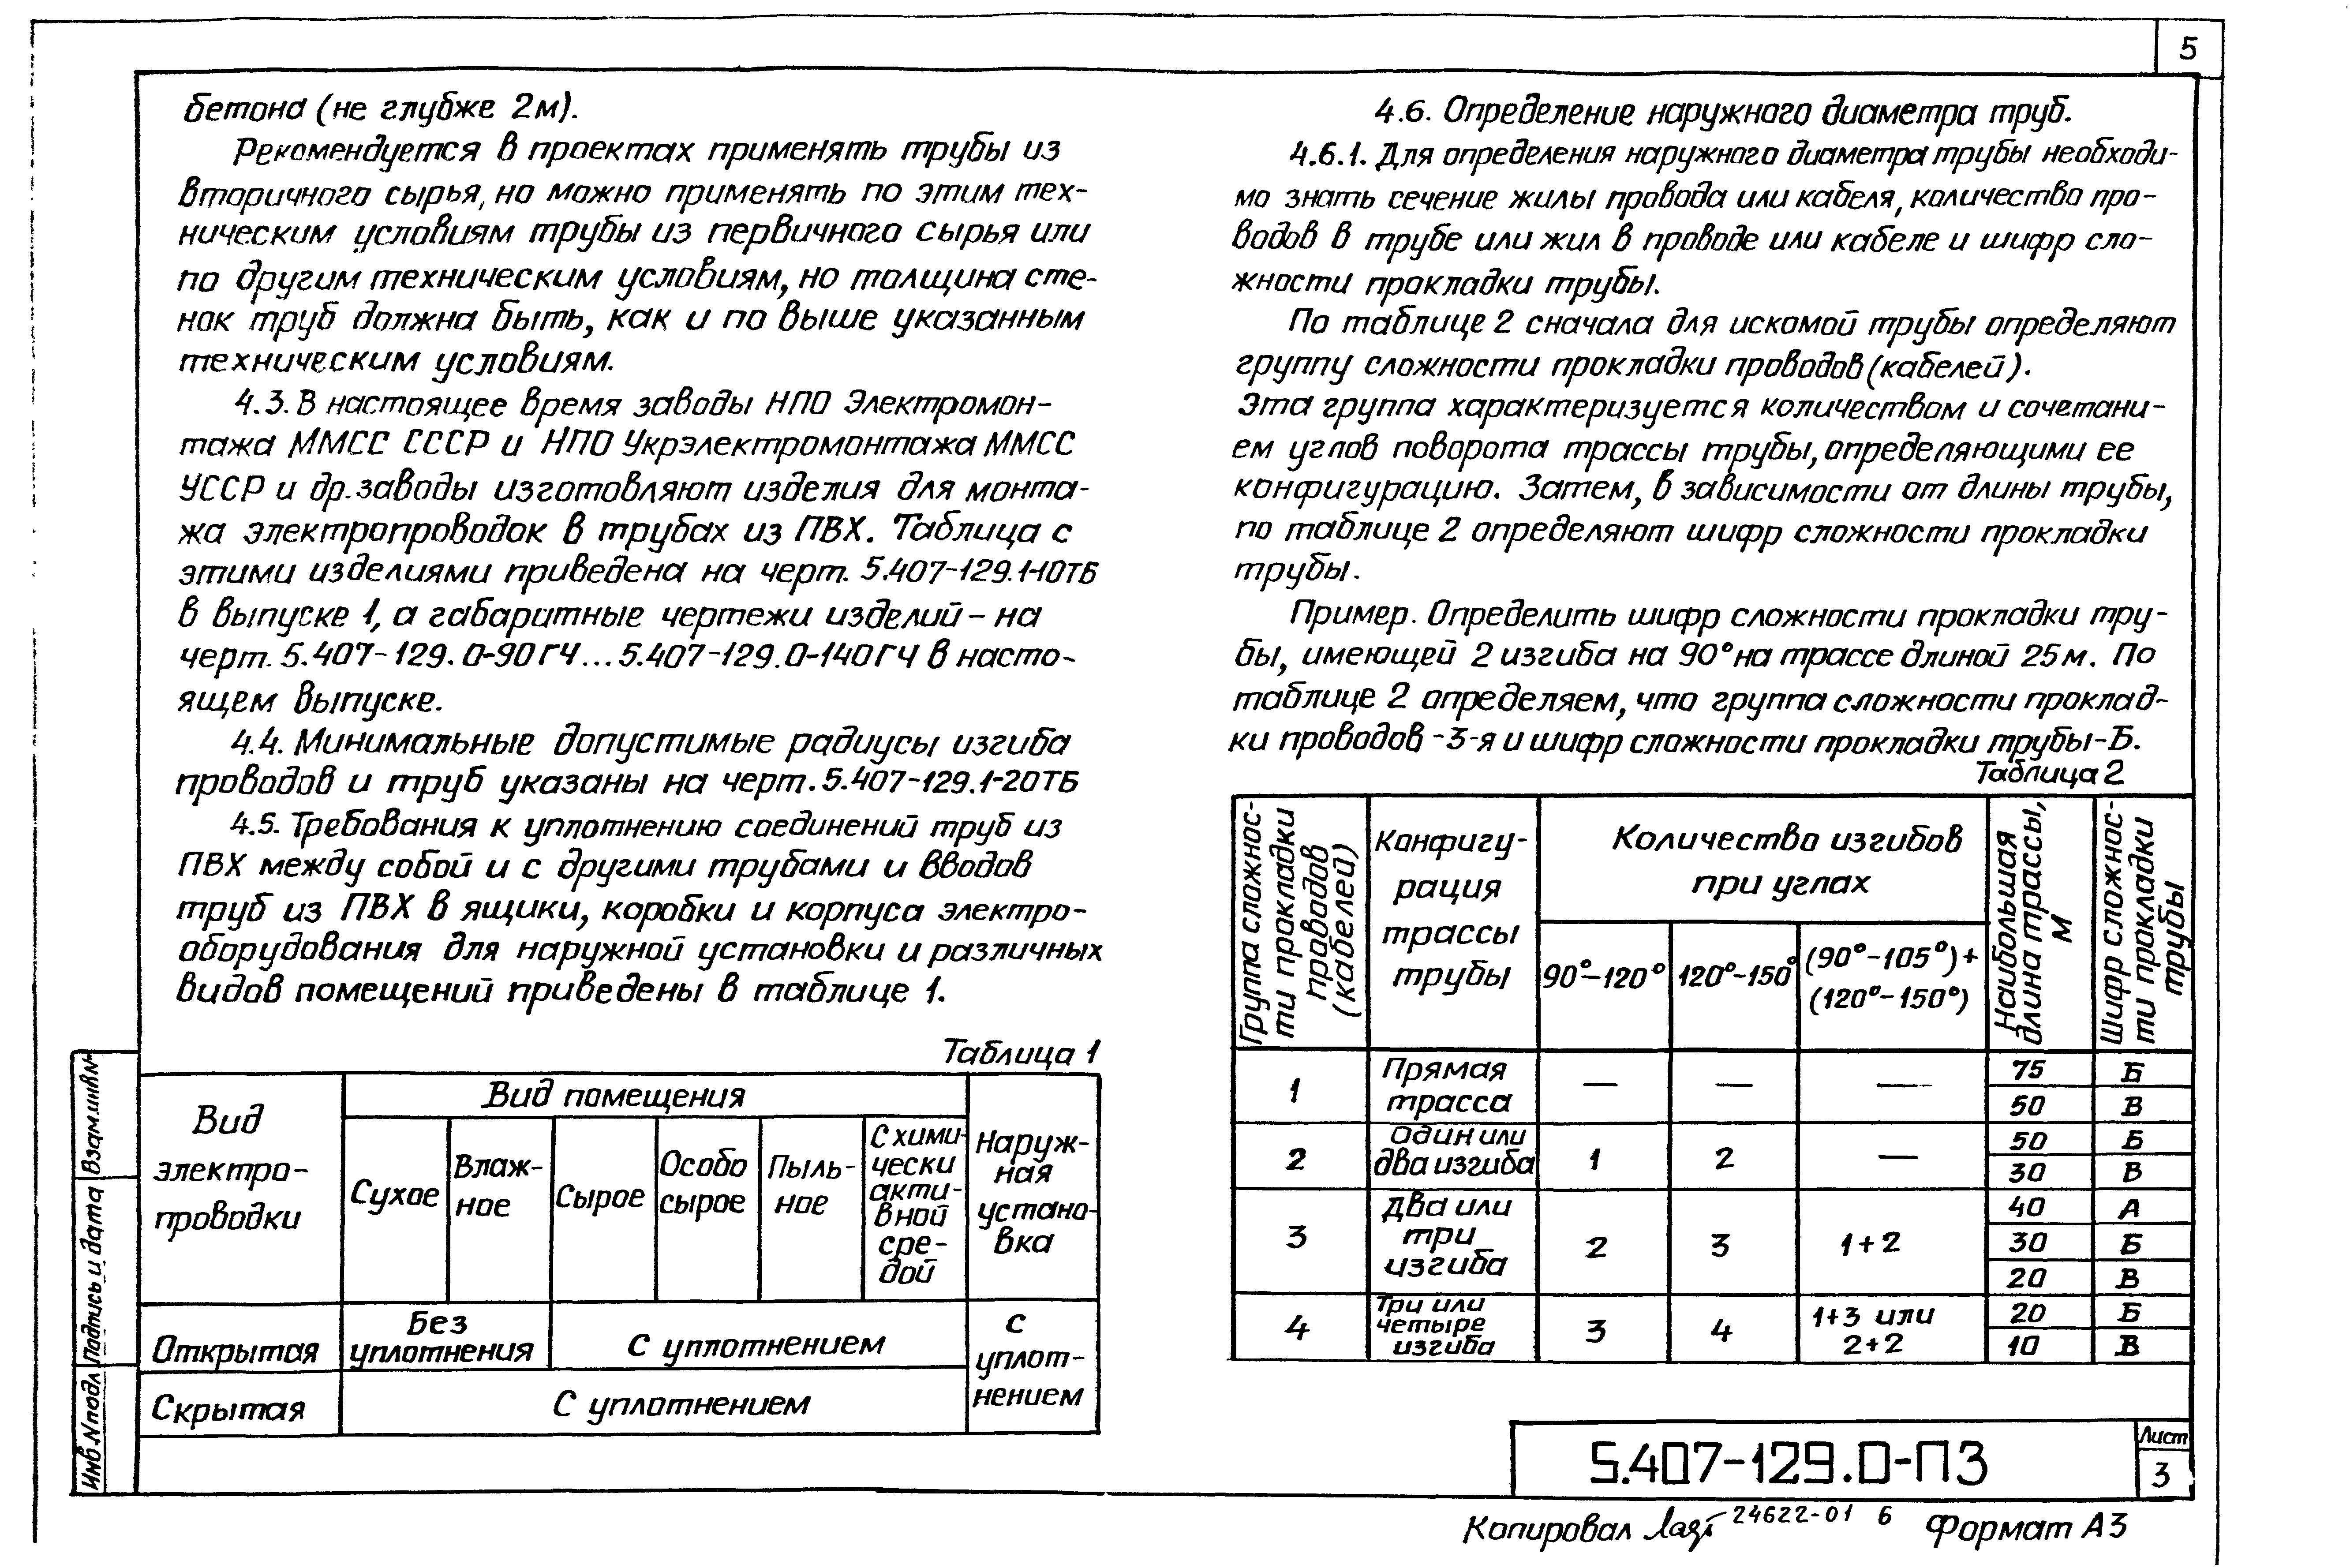 5
бетона (не глубже 2м).
Рекомендуется в проектах применять трубы из
вторичного сырья, но можно применять по этим тех-
ническим условиям трубы из первичного сырья или
по другим техническим условиям, но толщина сте-
нок труб должна быть, как и по выше указанным
техническим условиям.
4.3. В настоящее время заводы НПО Электромон-
тажа ММСС СССР и НПО Укрэлектромонтажа ММСС
УССР и др. заводы изготовляют изделия для монта-
жа электропроводок в трубах из ПВХ. Таблица с
этими изделиями приведена на черт. 5.407-129.1-10ТБ
в выпуске 1, а габаритные чертежи изделий - на
черт. 5.407-129.0-90ГЧ...5.407-129.0-140ГЧ в насто-
ящем выпуске.
4.4. Минимальные допустимые радиусы изгиба
проводов и труб указаны на черт. 5.407-129.1-20ТБ
4.5. Требования к уплотнению соединений труб из
ПВХ между собой и с другими трубами и вводов
труб из ПВХ в ящики, коробки и корпуса электро-
оборудования для наружной установки и различных
видов помещений приведены в таблице 1.
Таблица 1
Вид
электро-
проводки
Вид помещения
Сухое
Влаж-
ное
Сырое
Особо
сырое
Пыль-
ное
С хими-
чески
акти-
вной
сре-
дой
Наруж-
ная
устано-
вка
Открытая
Без
уплотнения
С уплотнением
С
уплот-
нением
Скрытая
С уплотнением
4.6. Определение наружного диаметра труб.
4.6.1. Для определения наружного диаметра трубы необходи-
мо знать сечение жилы провода или кабеля, количество про-
водов в трубе или жил в проводе или кабеле и шифр сло-
жности прокладки трубы.
По таблице 2 сначала для искомой трубы определяют
группу сложности прокладки проводов (кабелей).
Эта группа характеризуется количеством и сочетани-
ем углов поворота трассы трубы, определяющими ее
конфигурацию. Затем, в зависимости от длины трубы,
по таблице 2 определяют шифр сложности прокладки
трубы.
Пример. Определить шифр сложности прокладки тру-
бы, имеющей 2 изгиба на 90° на трассе длиной 25м. По
таблице 2 определяем, что группа сложности проклад-
ки проводов -3-я и шифр сложности прокладки трубы-Б.
Таблица 2
Группа сложнос-
ти прокладки
проводов
(кабелей)
Конфигу-
рация
трассы
трубы
Количество изгибов
при углах
90°-120°
120°-150°
(90°-105°)+
(120°-150°)
Наибольшая
длина трассы,
м
Шифр сложнос-
ти прокладки
трубы
1
Прямая
трасса
—
—
—
75
Б
50
В
2
Один или
два изгиба
1
2
—
50
Б
30
В
3
Два или
три
изгиба
2
3
1+2
40
А
30
Б
20
В
4
Три или
четыре
изгиба
3
4
1+3 или
2+2
20
Б
10
В
Взам.инв.№
Подпись и дата
Инв.N подл
5.407-129.0-ПЗ
Лист
3
Копировал
24622-01 6
Формат А3